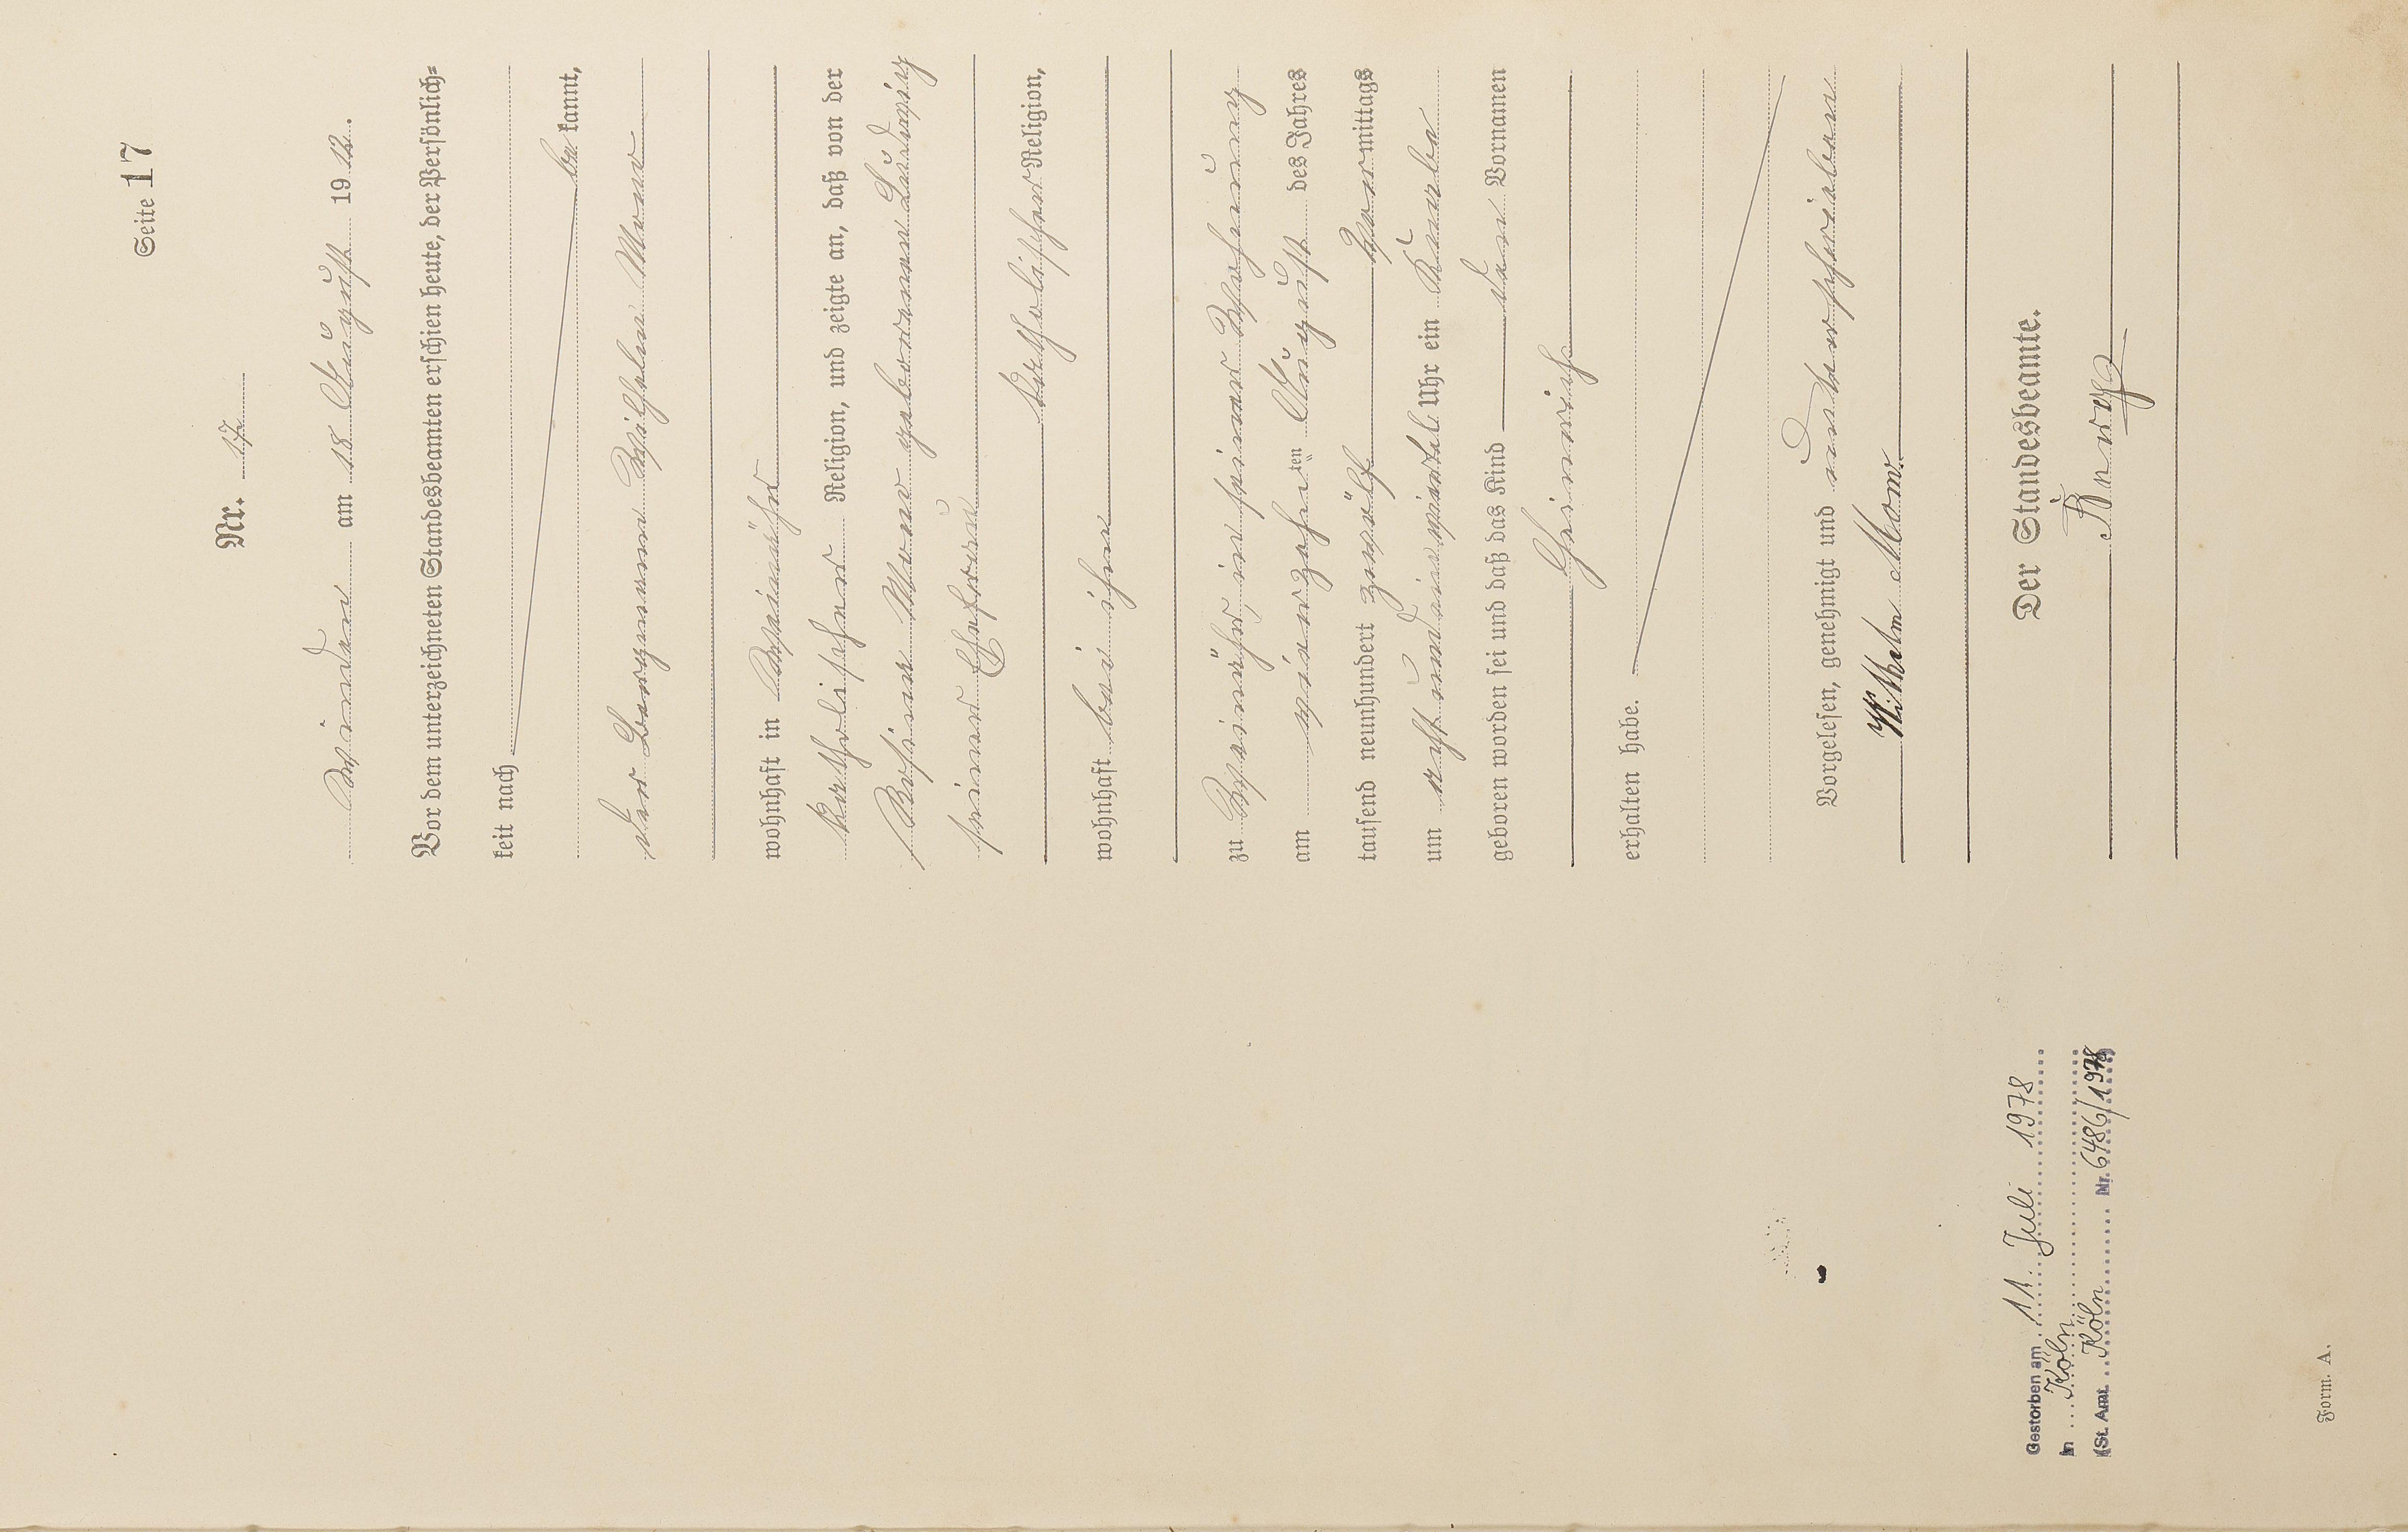 Seite 17
Nr. 17
Winden am 18 August 19 12.
Vor dem unterzeichneten Standesbeamten erschien heute, der Persönlich-
keit nach
be kannt,
der Bergmann Wilhelm Monr
wohnhaft in Weinähr
katholischer Religion, und zeigte an, daß von der
Rosina Monr geborenen Ludwig
seiner Ehefrau
katholischer Religion,
wohnhaft bei ihm
zu Weinähr, in seiner Wohnung
am vierzehn ten August des Jahres
tausend neunhundert zwölf Vor mittags
um acht und ein viertel Uhr ein Knabe
geboren worden sei und daß das Kind den Vornamen
Heinrich
erhalten habe.
Vorgelesen, genehmigt und unterschrieben
Wilhelm Monr.
Der Standesbeamte.
Gestorben am 11. Juli 1978
in Köln
(St. Amt Köln Nr. 6486/1978)
Form. A.